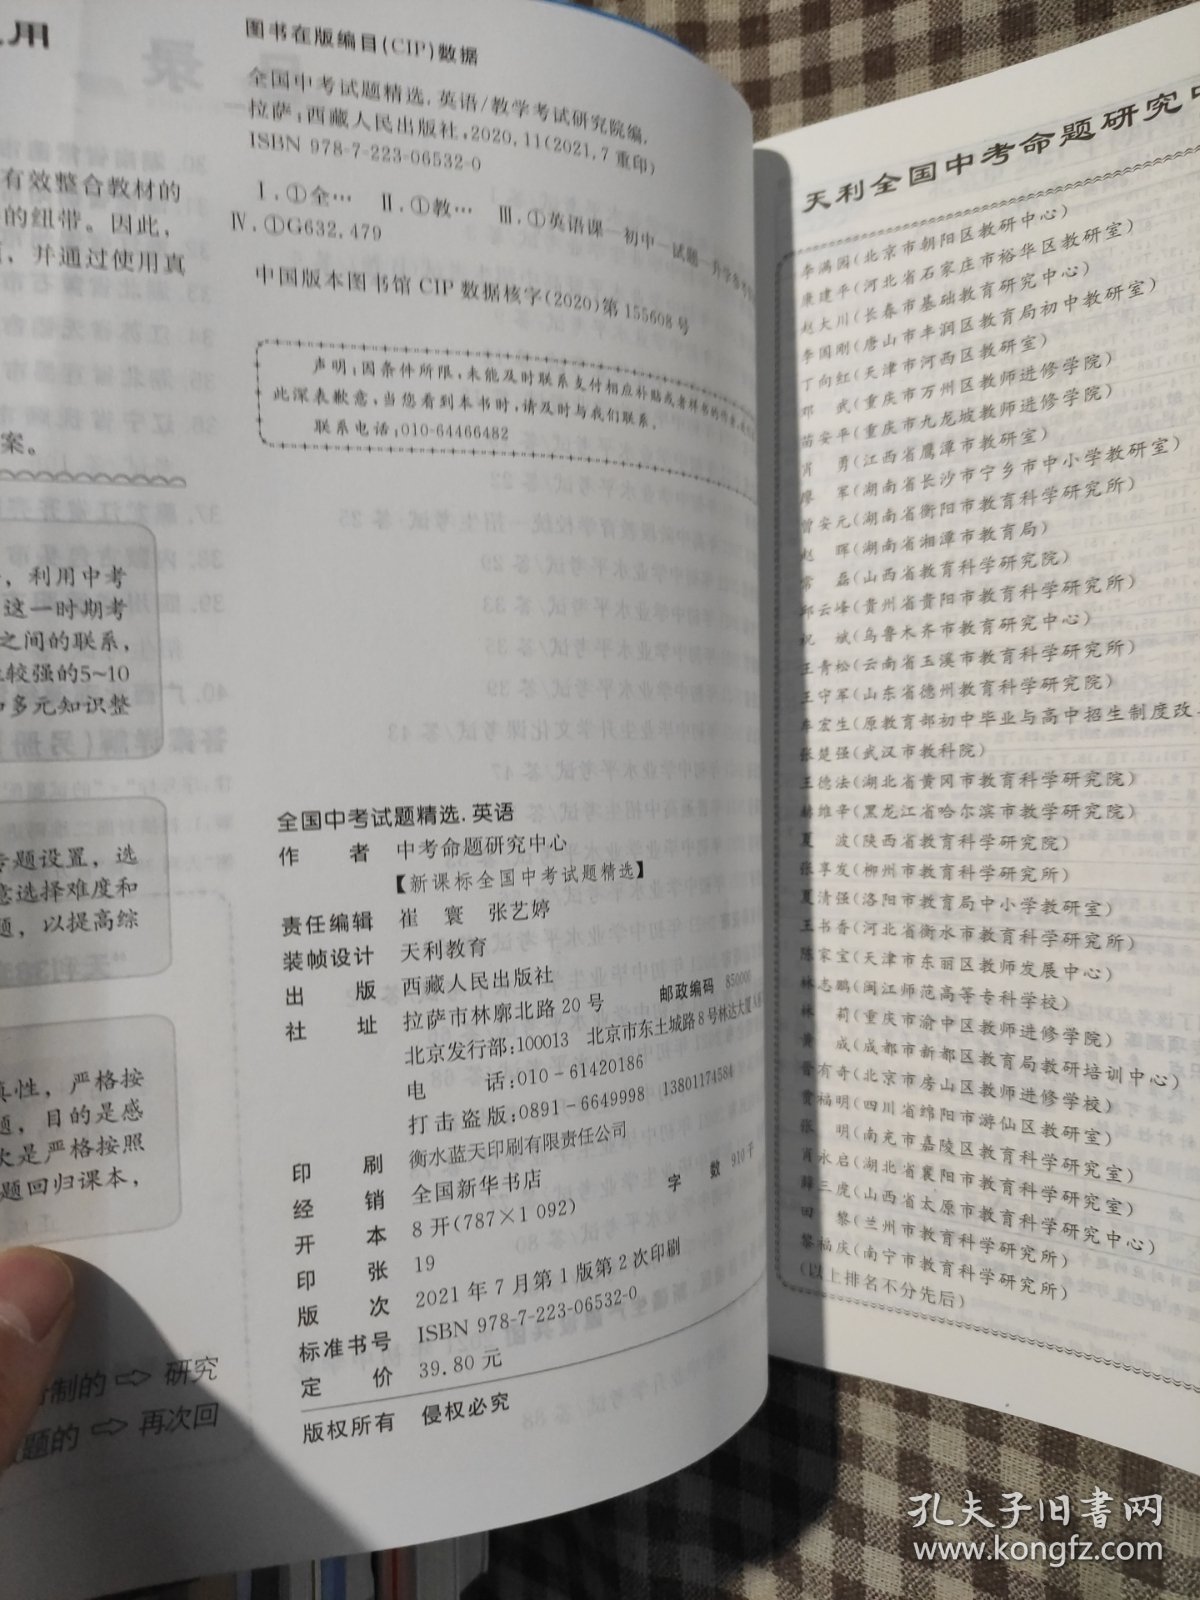 有效整合教材的
的纽带。因此，
，并通过使用真
案。
，利用中考
这一时期考
之间的联系，
较强的5~10
多元知识整
专题设置，选
意选择难度和
题，以提高综
真性，严格按
题，目的是感
次是严格按照
题回归课本，
制的⇨研究
题的⇨再次回
图书在版编目(CIP)数据
全国中考试题精选.英语/教学考试研究院编.
拉萨:西藏人民出版社,2020.11(2021.7重印)
ISBN 978-7-223-06532-0
Ⅰ.①全… Ⅱ.①教… Ⅲ.①英语课—初中—试题—升学参考
Ⅳ.①G632.479
中国版本图书馆CIP数据核字(2020)第155608号
声明:因条件所限,未能及时联系支付相应补贴或者样书的作者,
此深表歉意,当您看到本书时,请及时与我们联系。
联系电话:010-64466482
全国中考试题精选.英语
作者 中考命题研究中心
【新课标全国中考试题精选】
责任编辑 崔寰 张艺婷
装帧设计 天利教育
出版 西藏人民出版社
社址 拉萨市林廓北路20号 邮政编码 850000
北京发行部:100013 北京市东土城路8号林达大厦
电话:010-61420186
打击盗版:0891-6649998 13801174584
印刷 衡水蓝天印刷有限责任公司
经销 全国新华书店
开本 8开(787×1 092) 字数 910千
印张 19
版次 2021年7月第1版第2次印刷
标准书号 ISBN 978-7-223-06532-0
定价 39.80元
版权所有 侵权必究
天利全国中考命题研究中
李满园(北京市朝阳区教研中心)
康建平(河北省石家庄市裕华区教研室)
赵大川(长春市基础教育研究中心)
李国刚(唐山市丰润区教育局初中教研室)
丁向红(天津市河西区教研室)
邓武(重庆市万州区教师进修学院)
苗安平(重庆市九龙坡教师进修学院)
肖勇(江西省鹰潭市教研室)
廖军(湖南省长沙市宁乡市中小学教研室)
曾安元(湖南省衡阳市教育科学研究所)
赵晖(湖南省湘潭市教育局)
常磊(山西省教育科学研究院)
邱云峰(贵州省贵阳市教育科学研究所)
祝斌(乌鲁木齐市教育研究中心)
王青松(云南省玉溪市教育科学研究所)
王守军(山东省德州教育科学研究院)
牟宏生(原教育部初中毕业与高中招生制度改
张楚强(武汉市教科院)
王德法(湖北省黄冈市教育科学研究院)
赫维辛(黑龙江省哈尔滨市教学研究院)
夏波(陕西省教育科学研究院)
张享发(柳州市教育科学研究所)
夏清强(洛阳市教育局中小学教研室)
王书香(河北省衡水市教育科学研究所)
陈家宝(天津市东丽区教师发展中心)
林志鹏(闽江师范高等专科学校)
林莉(重庆市渝中区教师进修学院)
黄成(成都市新都区教育局教研培训中心)
晋有奇(北京市房山区教师进修学校)
贾福明(四川省绵阳市游仙区教研室)
张明(南充市嘉陵区教育科学研究室)
肖永启(湖北省襄阳市教育科学研究室)
薛三虎(山西省太原市教育科学研究中心)
田黎(兰州市教育科学研究所)
黎福庆(南宁市教育科学研究所)
(以上排名不分先后)
孔夫子旧书网
www.kongfz.com